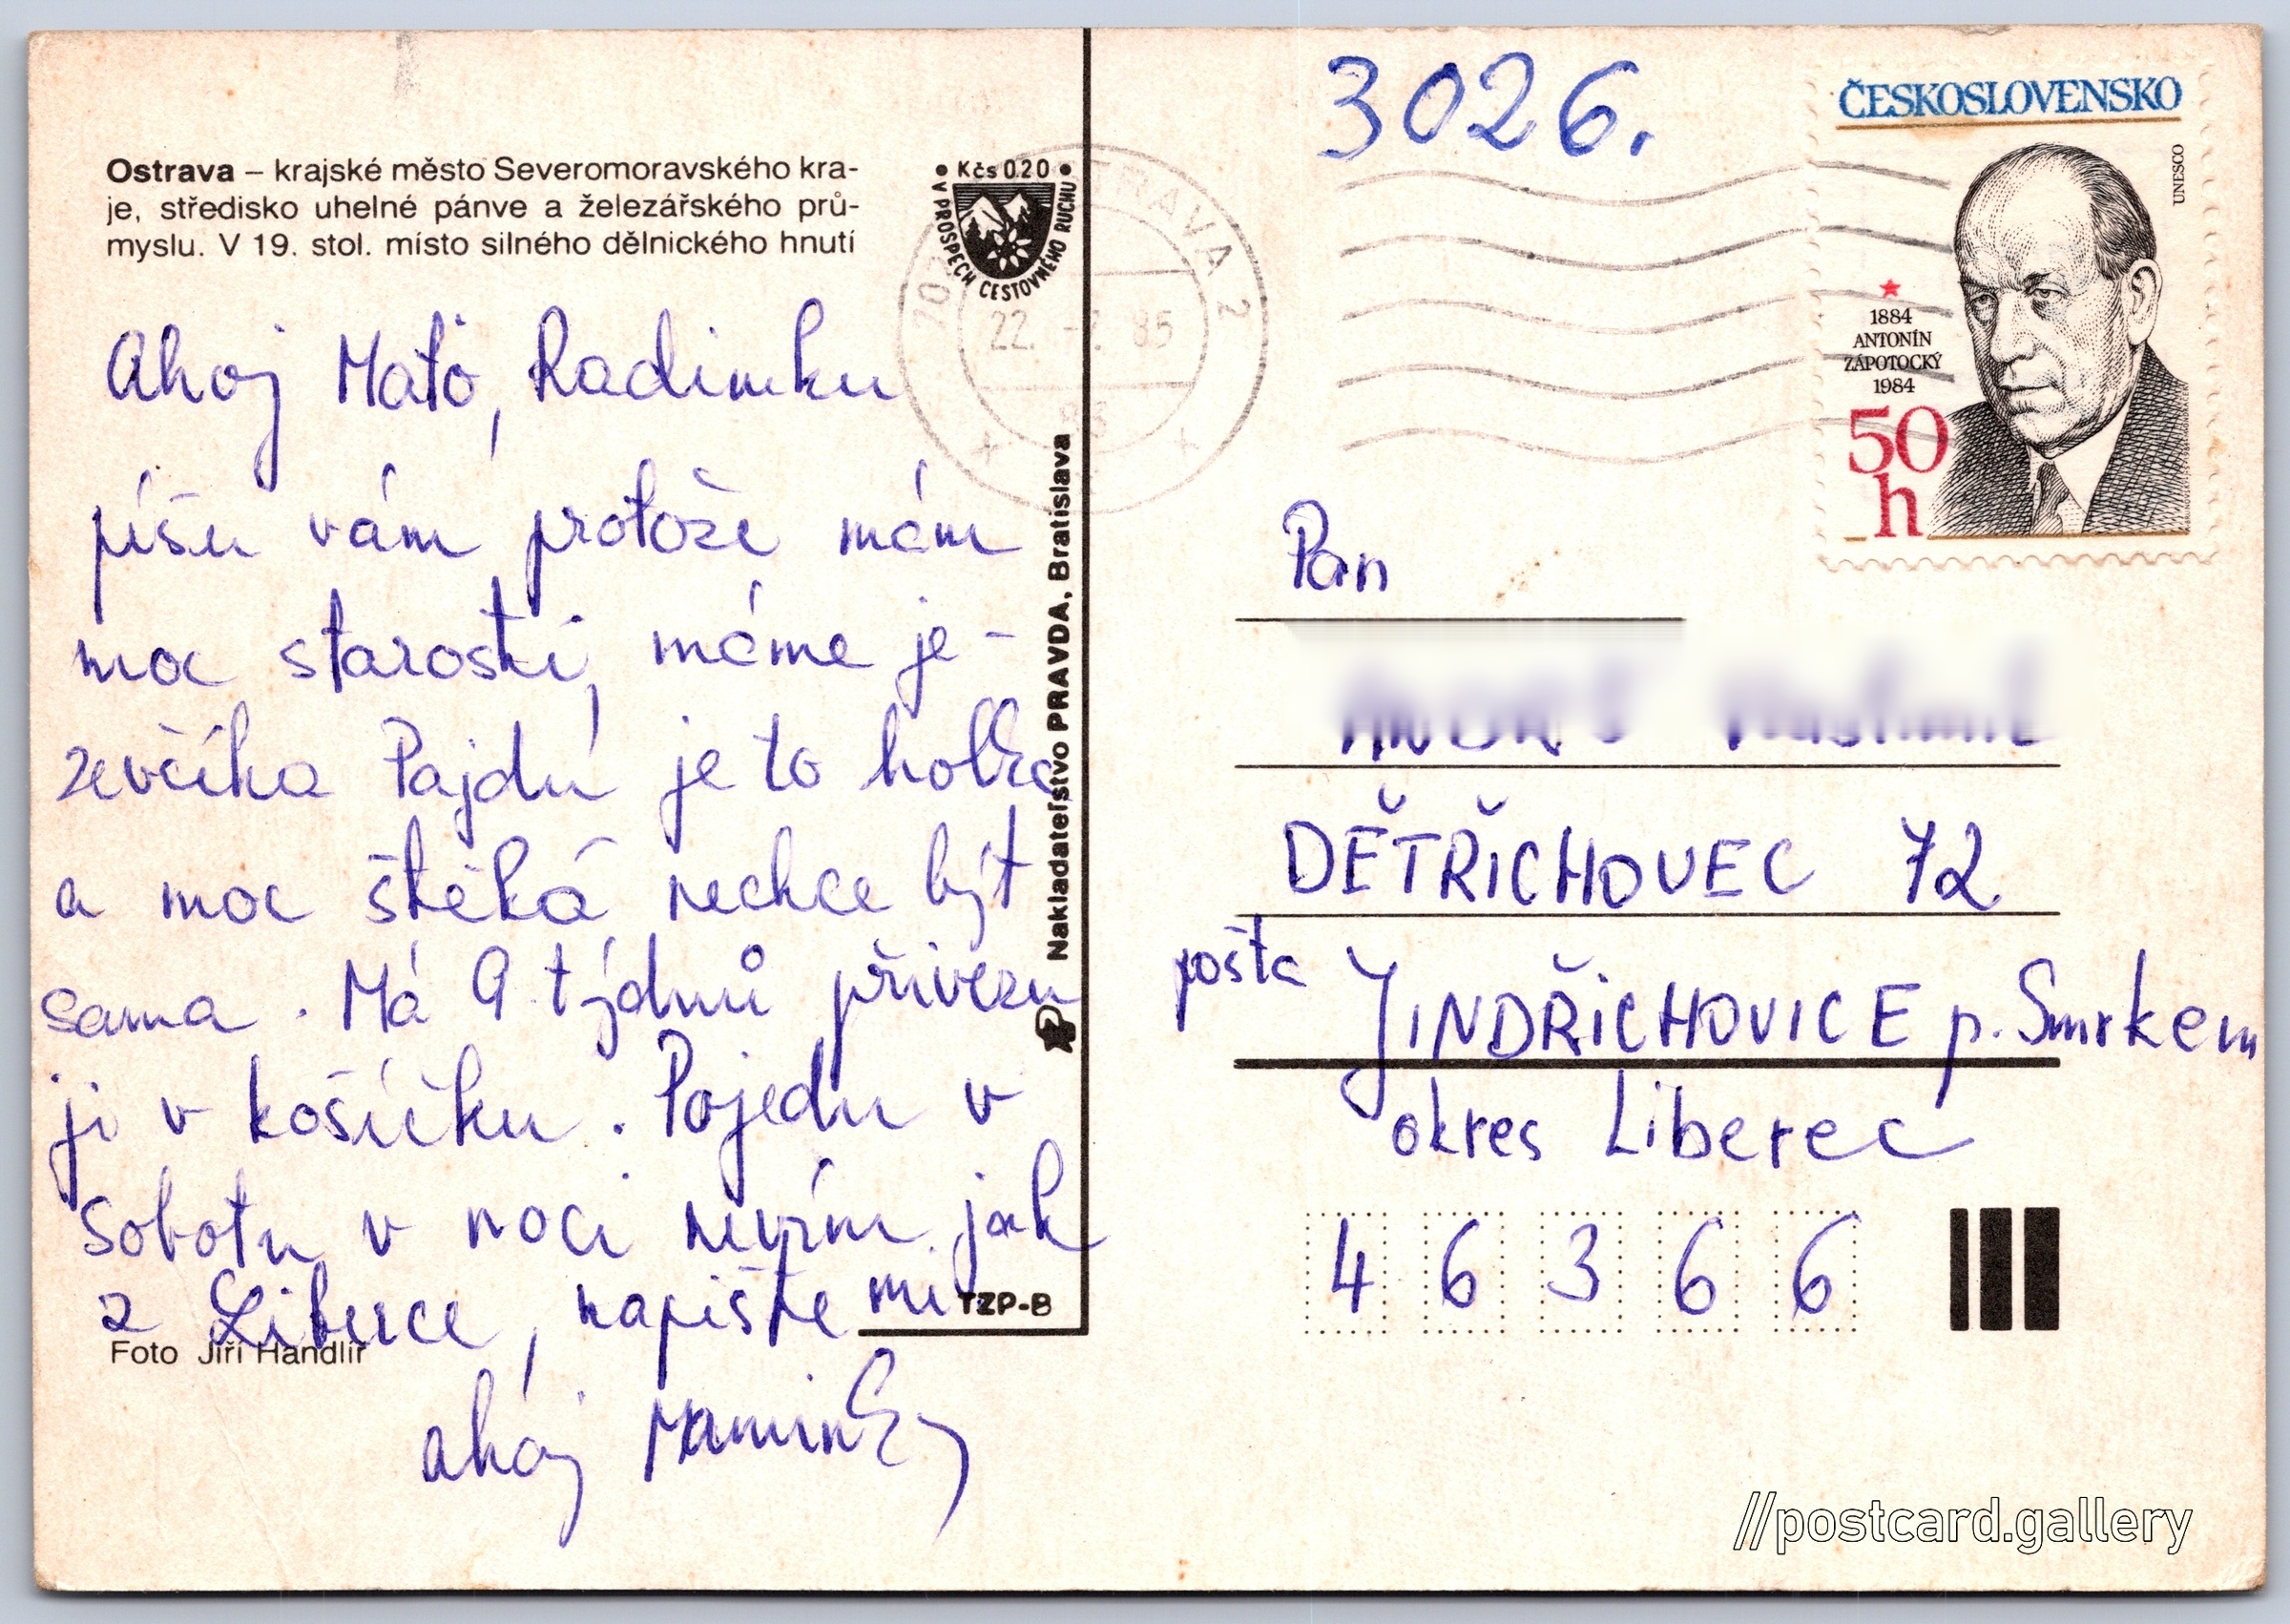 Ostrava – krajské město Severomoravského kra-
je, středisko uhelné pánve a železářského prů-
myslu. V 19. stol. místo silného dělnického hnutí
• Kčs 0.20 •
V PROSPĚCH CESTOVNÉHO RUCHU
Ahoj Maťo, Radimku
píšu vám protože mám
moc starostí, máme je-
zevčíka Pajdu je to holka
a moc štěká nechce být
sama. Má 9 týdnů přivezu
ji v košíčku. Pojedu v
sobotu v noci nevím jak
z Liberce, napište mi
ahoj Maminky
Foto Jiří Handlíř
TZP-B
Nakladateľstvo PRAVDA, Bratislava
22. 85
3026.
ČESKOSLOVENSKO
UNESCO
1884
ANTONÍN
ZÁPOTOCKÝ
1984
50
h
Pan
DĚTŘICHOVEC 72
pošta JINDŘICHOVICE p. Smrkem
okres Liberec
4 6 3 6 6
//postcard.gallery